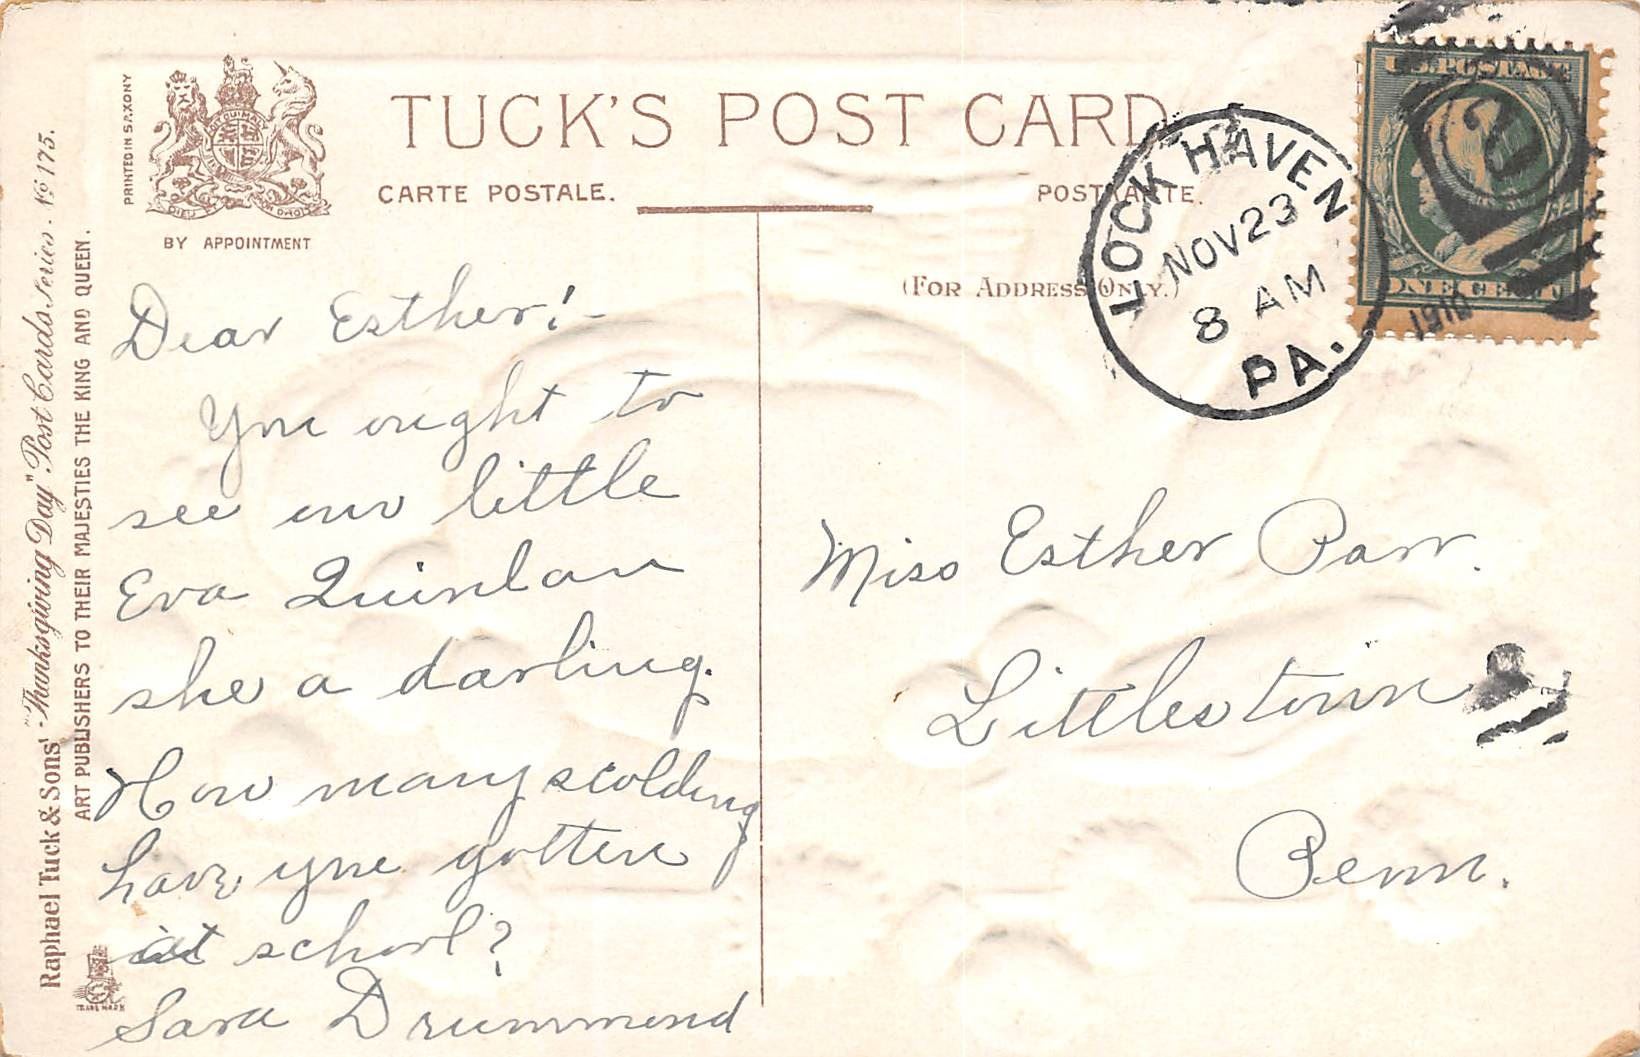 PRINTED IN SAXONY
DIEU ET MON DROIT
BY APPOINTMENT
TUCK'S POST CARD
CARTE POSTALE.
POSTKARTE.
(FOR ADDRESS ONLY.)
Raphael Tuck & Sons' "Thanksgiving Day" Post Cards. Series. No 175.
ART PUBLISHERS TO THEIR MAJESTIES THE KING AND QUEEN.
TRADE MARK
LOCK HAVEN
NOV 23
8 AM
1910
PA.
U.S. POSTAGE
2
ONE CENT
Dear Esther!-
You ought to
see our little
Eva Quinlan
she a darling.
How many scolding
have you gotten
at school?
Sara Drummond
Miss Esther Parr.
Littlestown
Penn.